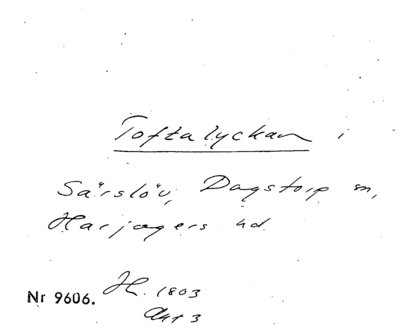 Toftalyckan i
Särslöv, Dagstorp sn,
Harjagers hd.
Nr 9606. H. 1803
Akt 3